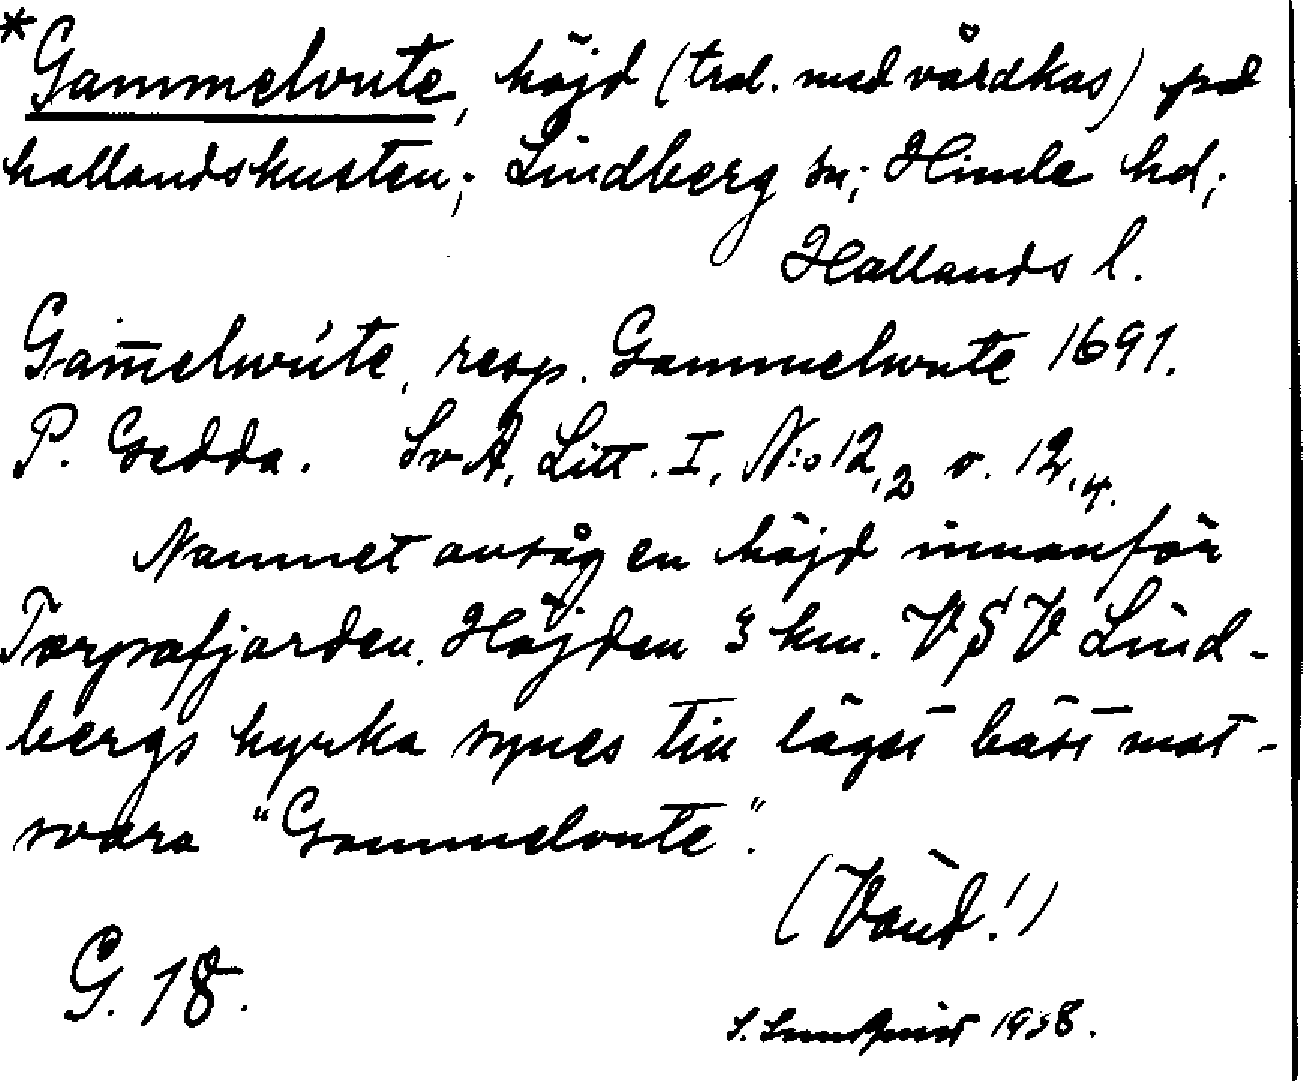 *Gammelvute, höjd (trol. med vårdkas) på
hallandskusten; Lindberg sn; Himle hd;
Hallands l.
Gam̄elwúte, resp. Gammelwute 1691.
P. Gedda. SvA, Litt. I, N:o 12,2 o. 12,4.
Namnet avsåg en höjd innanför
Torpafjorden. Höjden 3 km. VSV Lind-
bergs kyrka synes till läget bäst mot-
svara "Gammelvute".
(Vänd!)
G. 18.
S. Lundqvist 1938.